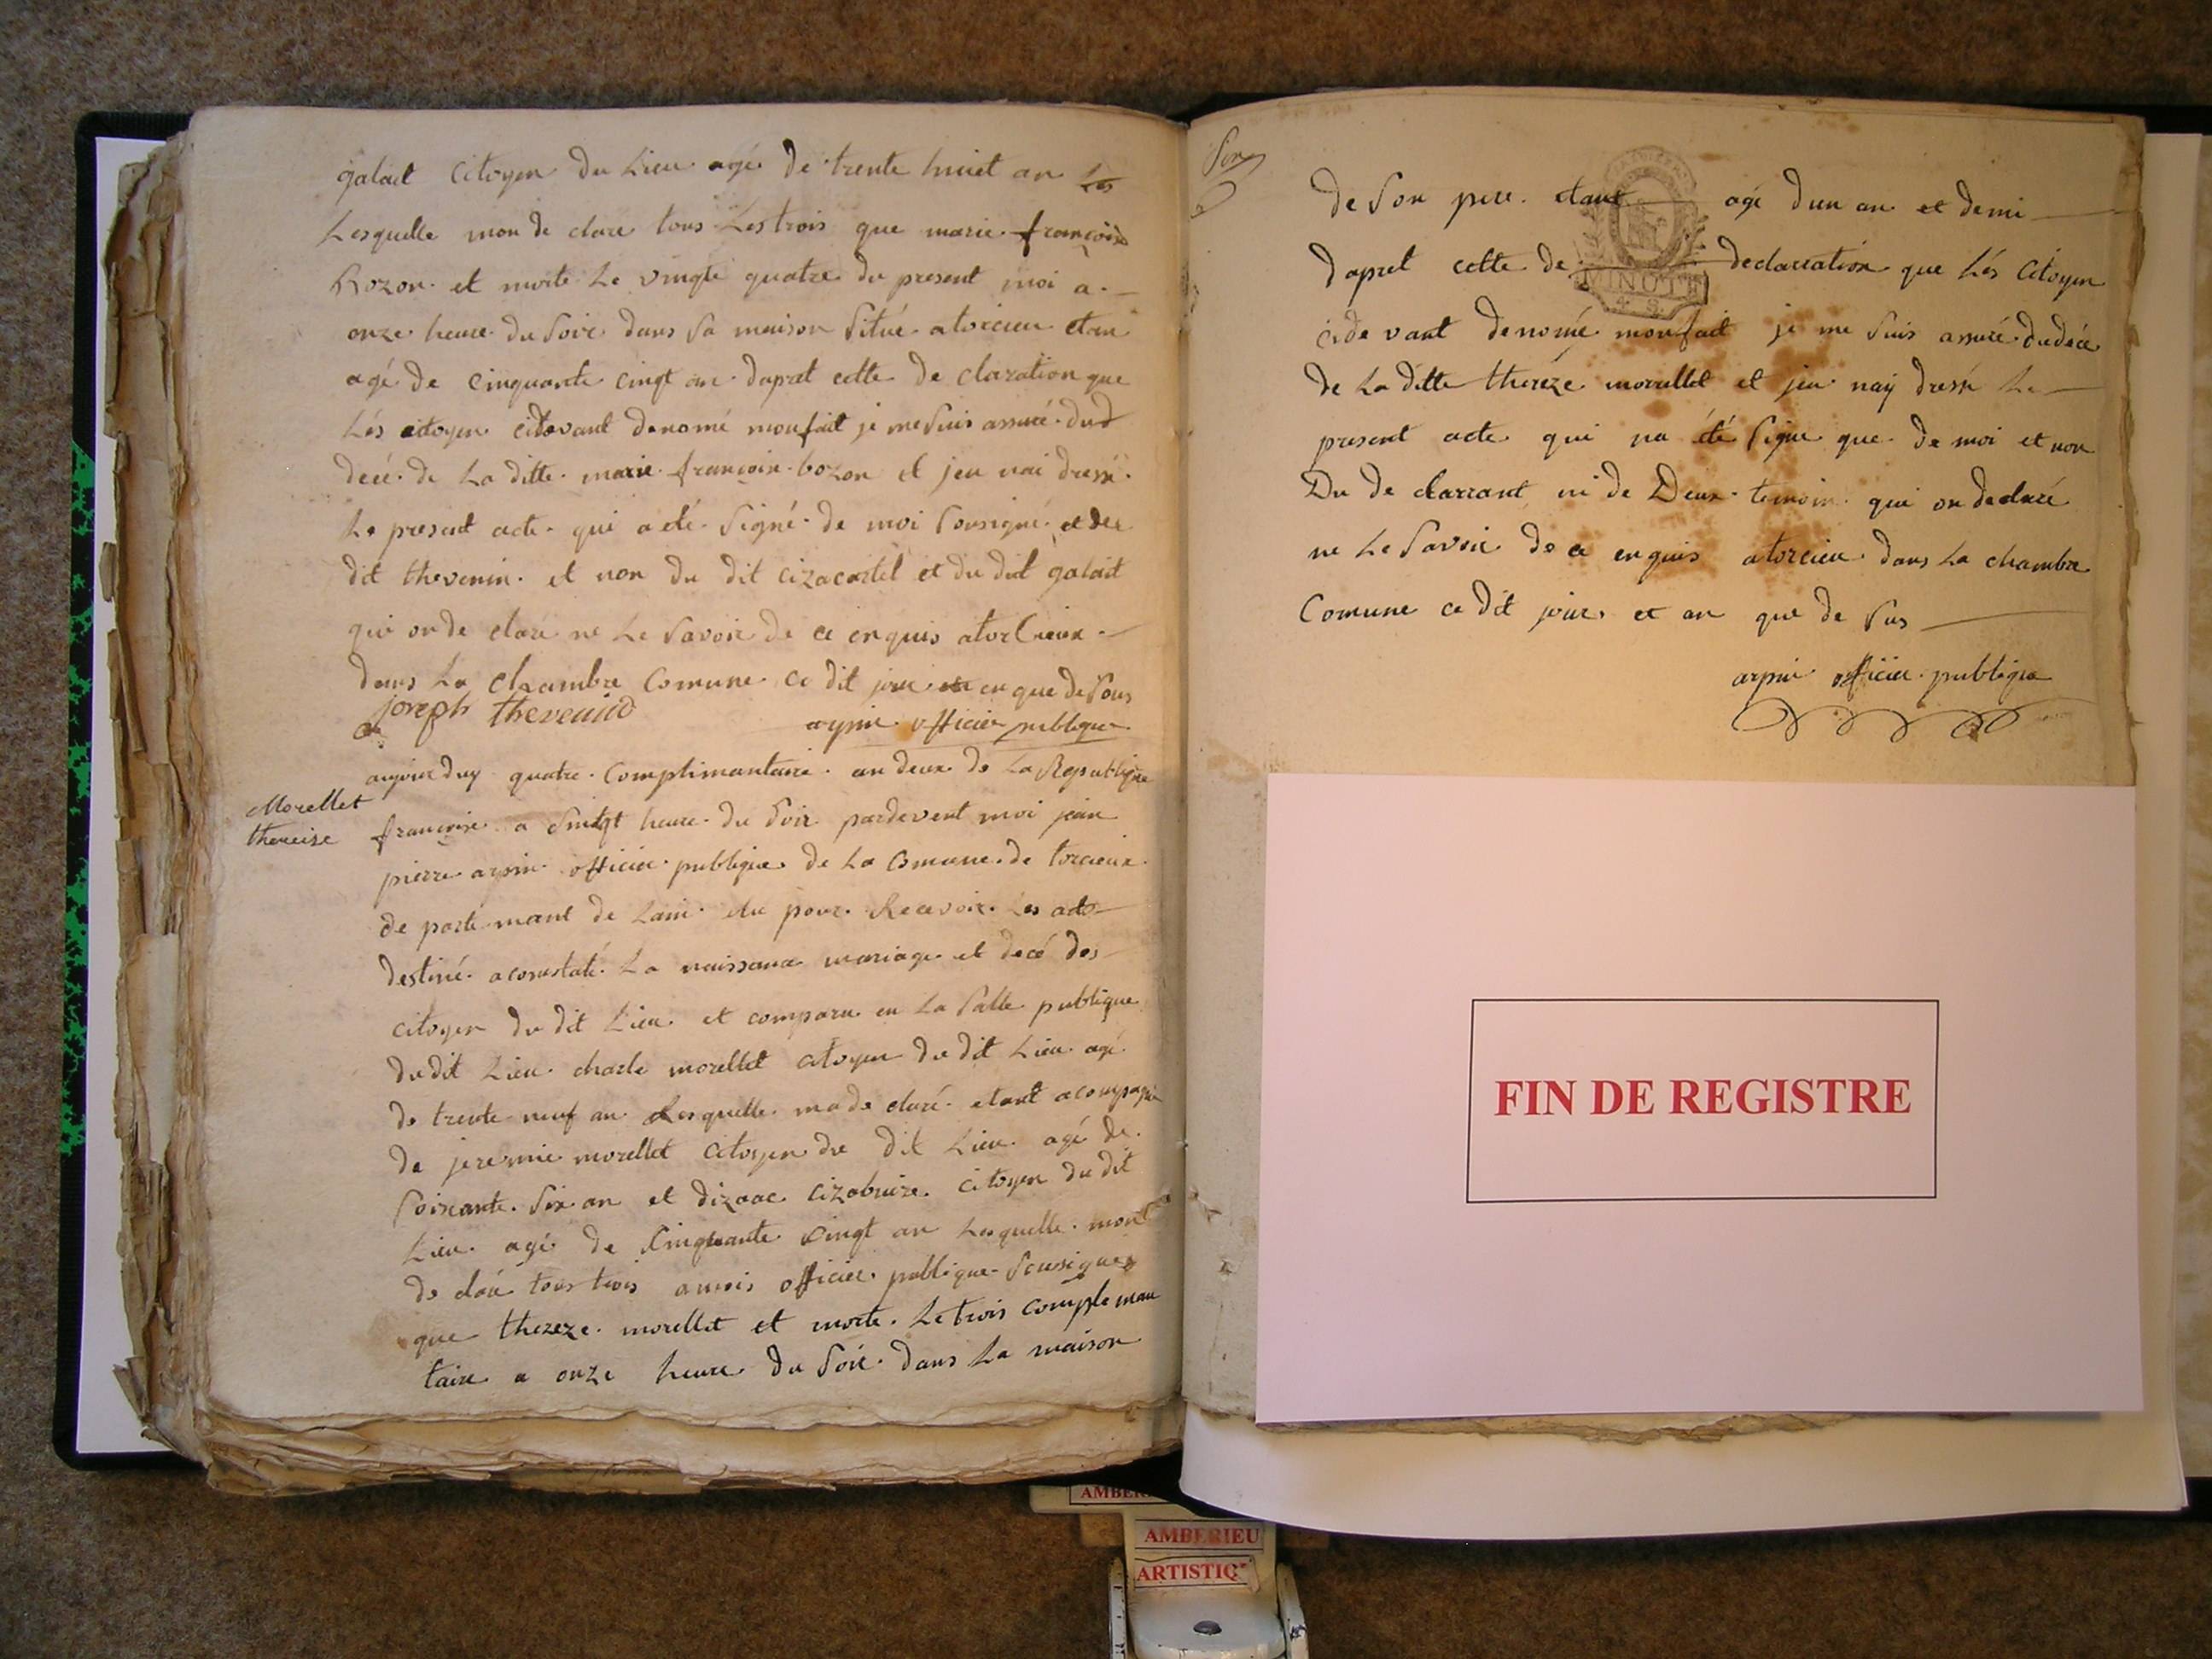 galait citoyen du Lieu agé de trente huiet an Les
Lesquelle mon de clare tous Les trois que marie françoise
Bozon et morte Le vingte quatre du present moi a
onze heure du Soir dans Sa maison Situé a torcieu etan
agé de cinquante cingt an dapret cette de claration que
Lés citoyen cidevant denomé monfait je me Suis assuré dud
decé de La ditte marie françoise bozon et jen nai dressé
Le present acte qui a eté Signé de moi Sousigné et du
dit thevenin et non du dit cizacartel et du dit galait
qui on de clare ne Le Savoir de ce enquis a torcieux
dans La chambre Comune ce dit jour en que de Sous
joseph thevenin
arpin officier publique
aujourduy quatre Complimantaire an deux de La Republique
Morellet
thereise
françoise a Saingt heure du Soir pardevent moi jean
pierre arpin officier publique de La Comune de torcieux
de parte mant de Lain elu pour Recevoir Les acte
destiné a constaté La naissance mariage et decé des
citoyen du dit Lieu et comparu en La Salle publique
du dit Lieu charle morellet citoyen du dit Lieu agé
de trente neuf an Lesquelle ma de claré etant acompagné
de jeremie morellet citoyen du dit Lieu agé de
Soixante Six an et dizaac cizabuire citoyen du dit
Lieu agé de Cinquante Cingt an Lesquelle mont
de claré tous trois a mois officier publique Sousigné
que thereze morellet et morte Le trois complemen
taire a onze heure du Soir dans La maison
Son
de Son pere etant agé dun an et demi
daprel cette de declaration que Lés Citoyen
MINUTE
4. S.
cide vant denomé monfait je me Suis assuré du decé
de La ditte thereze morellet et jen naÿ dressé Le
present acte qui na été Signé que de moi et non
Du de clarrant ni de Deux temoin qui on declaré
ne Le Savoir de ce enquis a torcieu dans La chambre
Comune ce dit jour et an que de Sus
arpin officier publique
FIN DE REGISTRE
AMBERIEU
ARTISTIQ